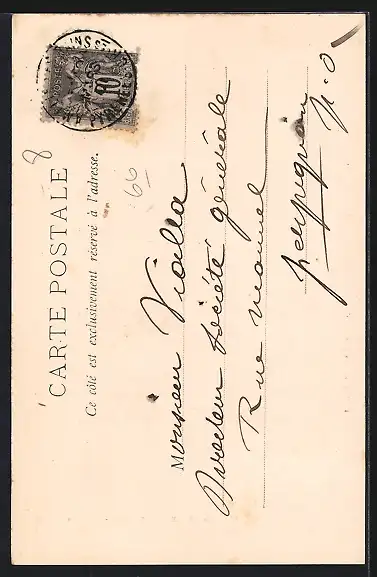 CARTE POSTALE
Ce côté est exclusivement réservé à l'adresse.
8
66
Monsieur Vialla
Directeur Société générale
Rue Manuel
perpignan
P. O
POSTES
10